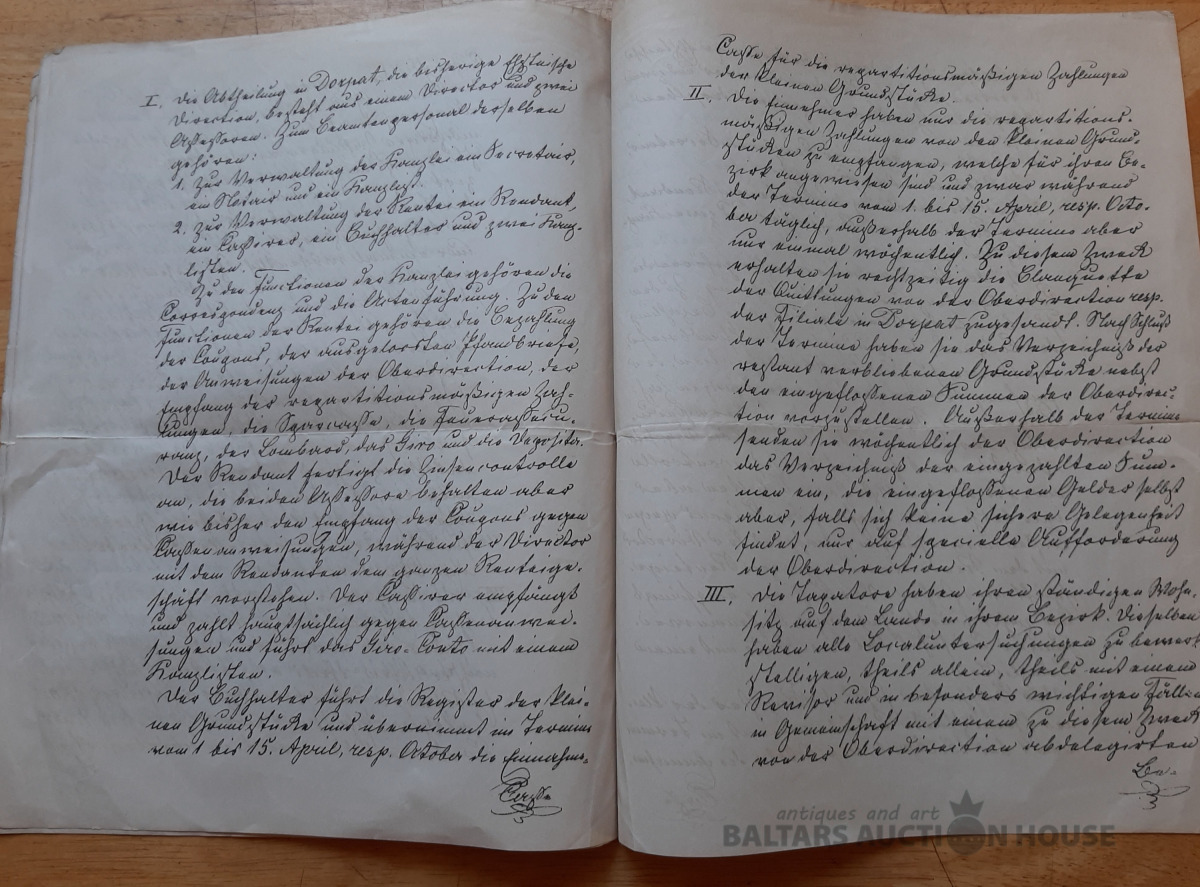 I. Die Abtheilung in Dorpat, die bisherige Ehstnische
Direction, besteht aus einem Director und zwei
Assessoren. Zum Beamtenpersonal derselben
gehören:
1. Zur Verwaltung der Kanzlei ein Secretair,
ein Notair und ein Kanzlist.
2. Zur Verwaltung der Rentei ein Rendant,
ein Cassirer, ein Buchhalter und zwei Kanz-
listen.
Zu den Functionen der Kanzlei gehören die
Correspondenz und die Actenführung. Zu den
Functionen der Rentei gehören die Bezahlung
der Coupons, der ausgeloosten Pfandbriefe,
der Anweisungen der Oberdirection, der
Empfang der repartitionsmäßigen Zah-
lungen, die Sparcasse, die Feuerassecu-
ranz, der Lombard, das Giro und die Deposita.
Der Rendant fertigt die Zinsencontrolle
an, die beiden Assessore behalten aber
wie bisher den Empfang der Coupons gegen
Cassenanweisungen, während der Director
mit dem Rendanten dem ganzen Renteige-
schäft vorstehen. Der Cassirer empfängt
und zahlt hauptsächlich gegen Cassenanwei-
sungen und führt das Giro-Conto mit einem
Kanzlisten.
Der Buchhalter führt die Register der klei-
nen Grundstücke und übernimmt im Termine
vom 1 bis 15. April, resp. October die Einnahme-
Casse
Casse für die repartitionsmäßigen Zahlungen
der kleinen Grundstücke.
II. Die Einnehmer haben nur die repartitions-
mäßigen Zahlungen von den kleinen Grund-
stücken zu empfangen, welche für ihren Be-
zirk angewiesen sind und zwar während
der Termine vom 1. bis 15. April, resp. Octo-
ber täglich, außerhalb der Termine aber
nur einmal wöchentlich. Zu diesem Zweck
erhalten sie rechtzeitig die Blanquette
der Quittungen von der Oberdirection resp.
der Filiale in Dorpat zugesandt. Nach Schluß
der Termine haben sie das Verzeichniß der
restant verbliebenen Grundstücke nebst
den eingeflossenen Summen der Oberdirec-
tion vorzustellen. Außerhalb der Termine
senden sie wöchentlich der Oberdirection
das Verzeichniß der eingezahlten Sum-
men ein, die eingeflossenen Gelder selbst
aber, falls sich keine sichere Gelegenheit
findet, nur auf specielle Aufforderung
der Oberdirection.
III. Die Taxatore haben ihren ständigen Wohn-
sitz auf dem Lande in ihrem Bezirk. Dieselben
haben alle Localuntersuchungen zu bewerk-
stelligen, theils allein, theils mit einem
Revisor und in besonders wichtigen Fällen
in Gemeinschaft mit einem zu diesem Zweck
von der Oberdirection abdelegirten
Be-
antiques and art
BALTARS AUCTION HOUSE